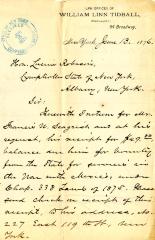 LAW OFFICES OF
WILLIAM LINN TIDBALL,
Broadway,
New York, June 13, 1876.
Hon. Lucius Robinson,
Comptroller State of New York,
Albany, New York.
Sir:
Herewith I return for Mr.
Francis W. Seagrist and at his
request, his receipt for $
balance due him for bounty
from the State for services in
the War with Mexico, under
Chap. 338 Laws of 1875. Please
send check on receipt of this
receipt, to his address, No.
227 East 119 th St., New
York.